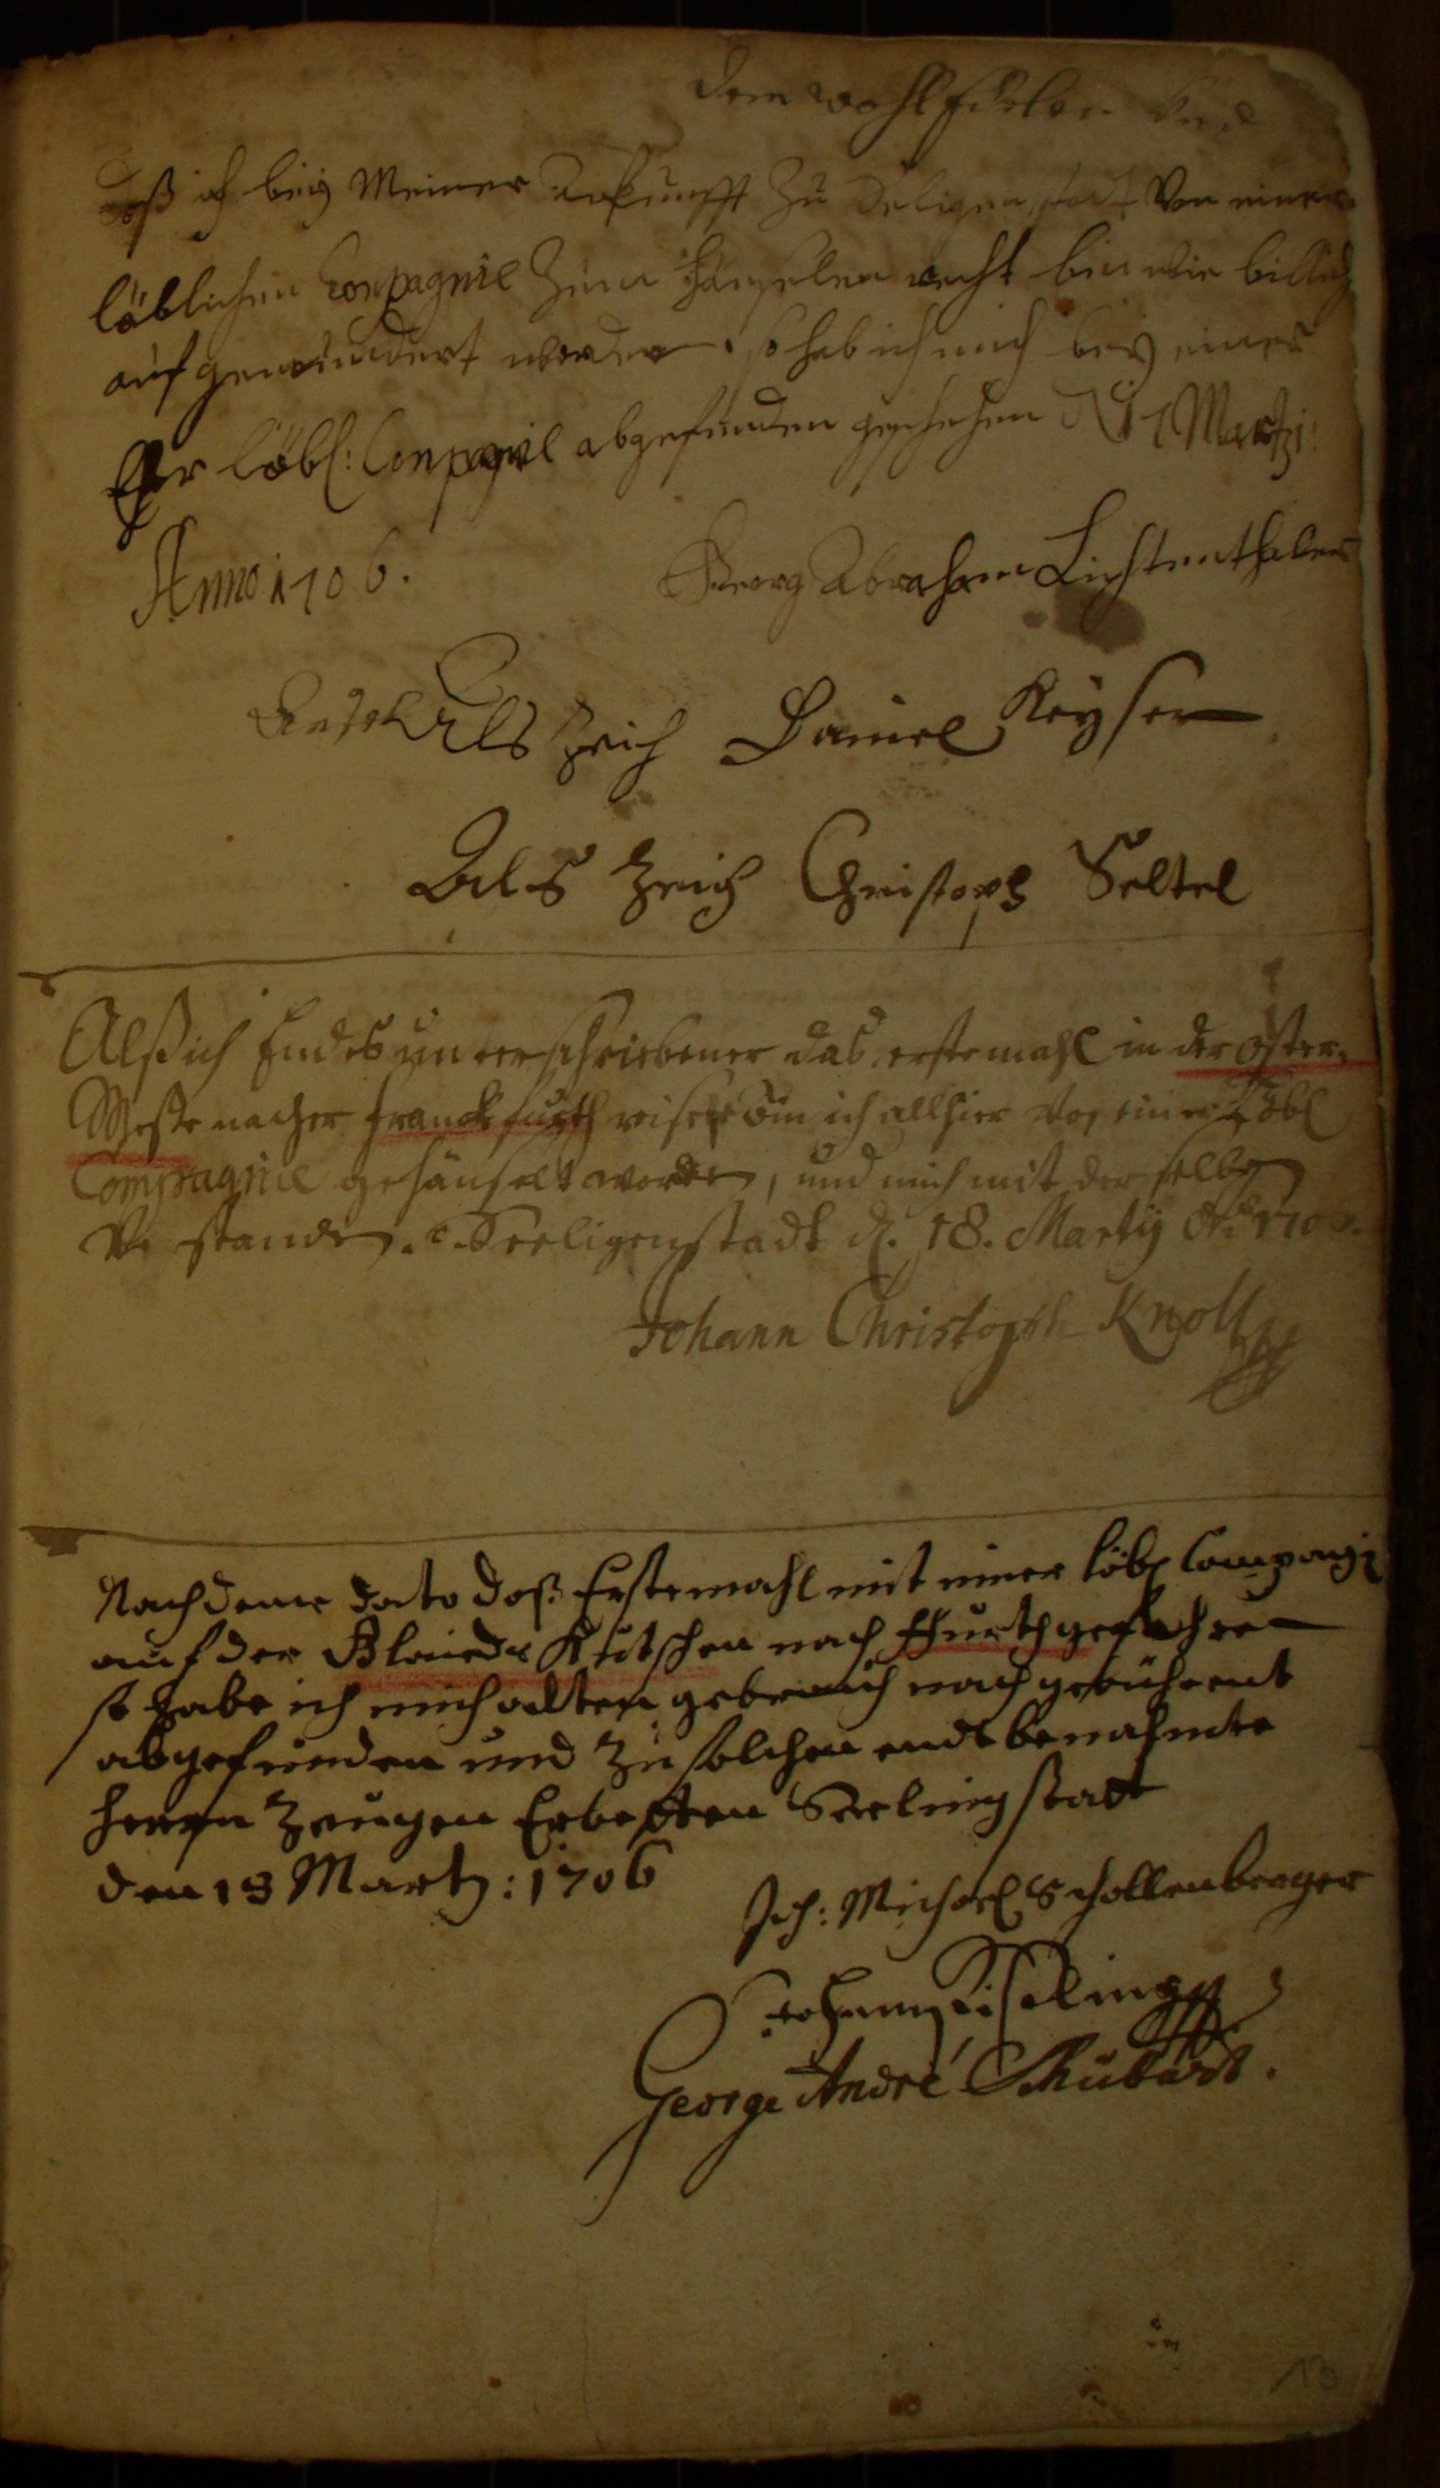 dem wohl Edelen und
Daß ich beÿ Meiner Ankunfft Zu Seligenstadt Von einer
löblichen Compagnie Zum hänselen recht bin wie billich
auf gemundert worden. so hab ich mich beÿ einer
löbl: Compagnie abgefunden geschehen Martzi:
Anno 1706.
Georg Abraham Lichtenthaler
Als Zeich Daniel Keyser
Als Zeich Christoph Seltel
Alß ich Endes unterschriebener das erstemahl in der Oster-
Messe nacher Franckfurth reisete bin ich allhier Von einer Löbl
Compagnie gehänselt worden, und mich mit derselben
Verstanden. Seeligenstadt d. 18. Martÿ Ao. 1706.
Johann Christoph Knoll
Nach deme Dato daß Erstemahl mit einer löbl Compagni
auf der Kutschen nach Ffurth gefahren
so habe ich mich alten gebrauch nach gebührent
abgefunden und zu solchen endt benahmte
herrn Zeugen Erbetten Seelingstatt
den 18 Martz: 1706
Joh: Michael Schollenberger
Johann
George André Schubart.
13